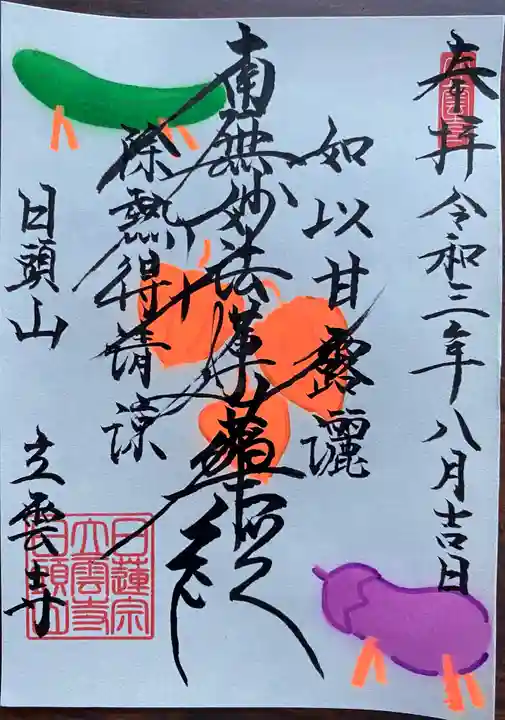 奉拝 令和三年八月吉日
如以甘露灑
南無妙法蓮華経
除熱得清涼
日頭山 立雲寺
日蓮宗
立雲寺
日頭山